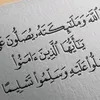 ٱللَّهَ وَمَلَٰٓئِكَتَهُۥ يُصَلُّونَ
يَٰٓأَيُّهَا ٱلَّذِينَ ءَامَنُوا۟
عَلَيْهِ وَسَلِّمُوا۟ تَسْلِيمًا